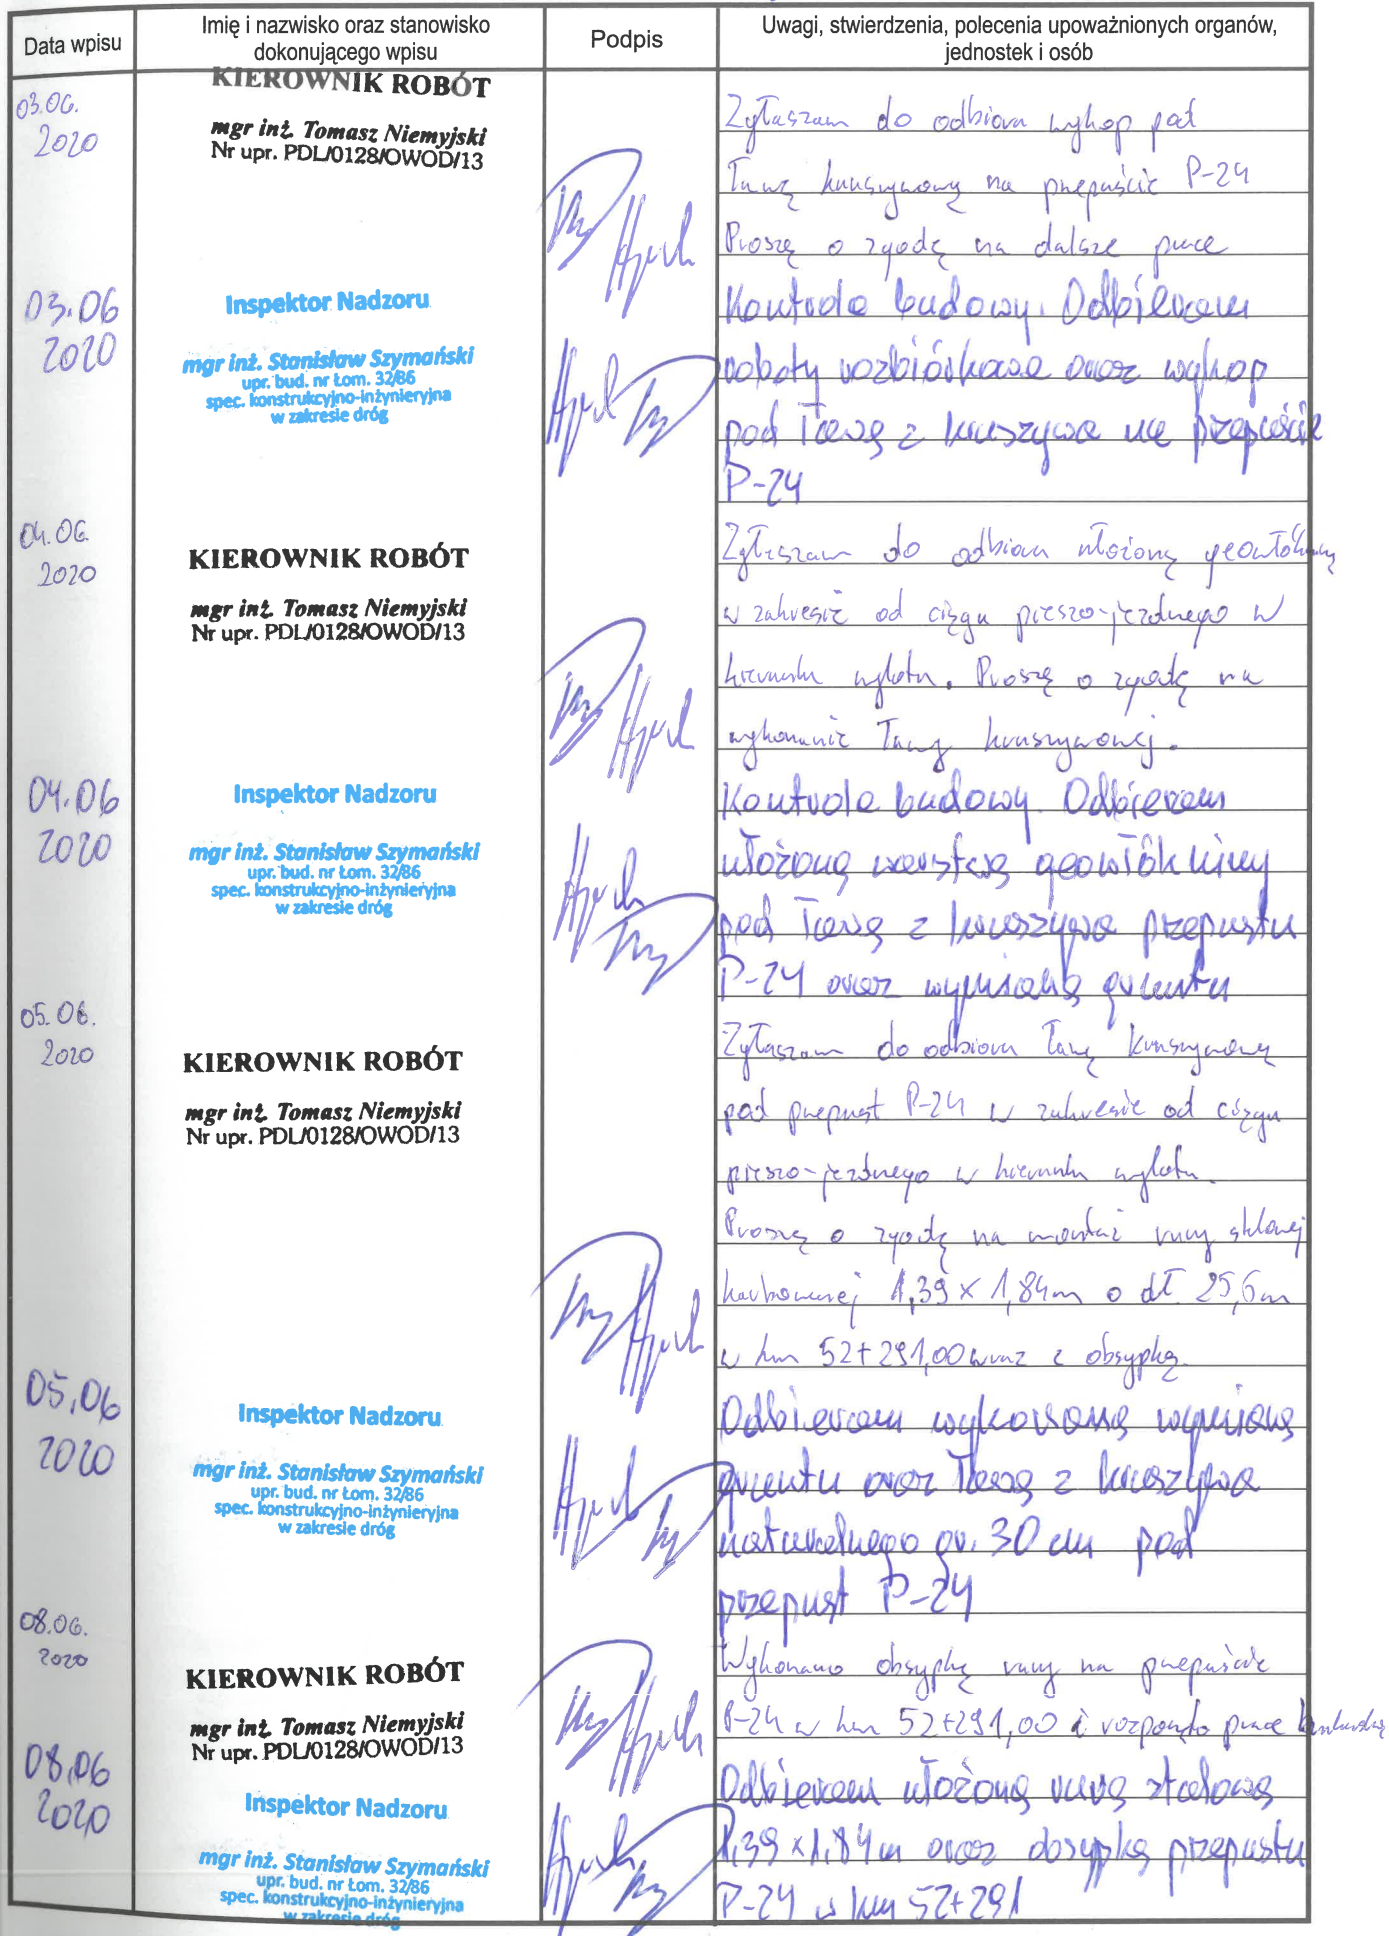 Data wpisu
Imię i nazwisko oraz stanowisko
dokonującego wpisu
Podpis
Uwagi, stwierdzenia, polecenia upoważnionych organów,
jednostek i osób
03.06.
2020
KIEROWNIK ROBÓT
mgr inż. Tomasz Niemyjski
Nr upr. PDL/0128/OWOD/13
Zgłaszam do odbioru wykop pod
ławę kruszywową na przepuście P-24
Proszę o zgodę na dalsze prace
03.06
2020
Inspektor Nadzoru
mgr inż. Stanisław Szymański
upr. bud. nr Łom. 32/86
spec. konstrukcyjno-inżynieryjna
w zakresie dróg
Kontrola budowy. Odbieram
roboty rozbiórkowe oraz wykop
pod ławę z kruszywa na przepuście
P-24
04.06.
2020
KIEROWNIK ROBÓT
mgr inż. Tomasz Niemyjski
Nr upr. PDL/0128/OWOD/13
Zgłaszam do odbioru ułożoną geowłókninę
w zakresie od ciągu pieszo-jezdnego w
kierunku wylotu. Proszę o zgodę na
wykonanie ławy kruszywowej.
04.06
2020
Inspektor Nadzoru
mgr inż. Stanisław Szymański
upr. bud. nr Łom. 32/86
spec. konstrukcyjno-inżynieryjna
w zakresie dróg
Kontrola budowy. Odbieram
ułożoną warstwę geowłókniny
pod ławę z kruszywa przepustu
P-24 oraz wymianę gruntu
05.06.
2020
KIEROWNIK ROBÓT
mgr inż. Tomasz Niemyjski
Nr upr. PDL/0128/OWOD/13
Zgłaszam do odbioru ławę kruszywową
pod przepust P-24 w zakresie od ciągu
pieszo-jezdnego w kierunku wylotu.
Proszę o zgodę na montaż rury stalowej
karbowanej 1,39 x 1,84m o dł. 25,6m
w km 52+291,00 wraz z obsypką.
05.06
2020
Inspektor Nadzoru
mgr inż. Stanisław Szymański
upr. bud. nr Łom. 32/86
spec. konstrukcyjno-inżynieryjna
w zakresie dróg
Odbieram wykonaną wymianę
gruntu oraz ławę z kruszywa
naturalnego gr. 30 cm pod
przepust P-24
08.06.
2020
KIEROWNIK ROBÓT
mgr inż. Tomasz Niemyjski
Nr upr. PDL/0128/OWOD/13
Wykonano obsypkę rury na przepuście
P-24 w km 52+291,00 i rozpoczęto prace
08.06
2020
Inspektor Nadzoru
mgr inż. Stanisław Szymański
upr. bud. nr Łom. 32/86
spec. konstrukcyjno-inżynieryjna
w zakresie dróg
Odbieram ułożoną rurę stalową
1,39 x 1,84 m oraz obsypkę przepustu
P-24 w km 52+291